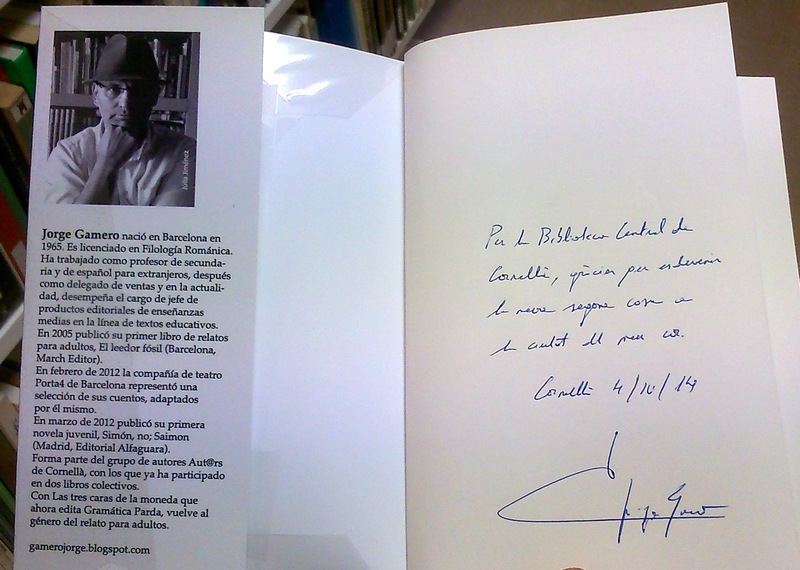 Júlia Jiménez
Jorge Gamero nació en Barcelona en
1965. Es licenciado en Filología Románica.
Ha trabajado como profesor de secunda-
ria y de español para extranjeros, después
como delegado de ventas y en la actuali-
dad, desempeña el cargo de jefe de
productos editoriales de enseñanzas
medias en la línea de textos educativos.
En 2005 publicó su primer libro de relatos
para adultos, El leedor fósil (Barcelona,
March Editor).
En febrero de 2012 la compañía de teatro
Porta4 de Barcelona representó una
selección de sus cuentos, adaptados
por él mismo.
En marzo de 2012 publicó su primera
novela juvenil, Simón, no; Saimon
(Madrid, Editorial Alfaguara).
Forma parte del grupo de autores Aut@rs
de Cornellà, con los que ya ha participado
en dos libros colectivos.
Con Las tres caras de la moneda que
ahora edita Gramática Parda, vuelve al
género del relato para adultos.
gamerojorge.blogspot.com
Per la Biblioteca Central de
Cornellà, gràcies per esdevenir
la meva segona casa a
la ciutat del meu cor.
Cornellà 4/IV/14